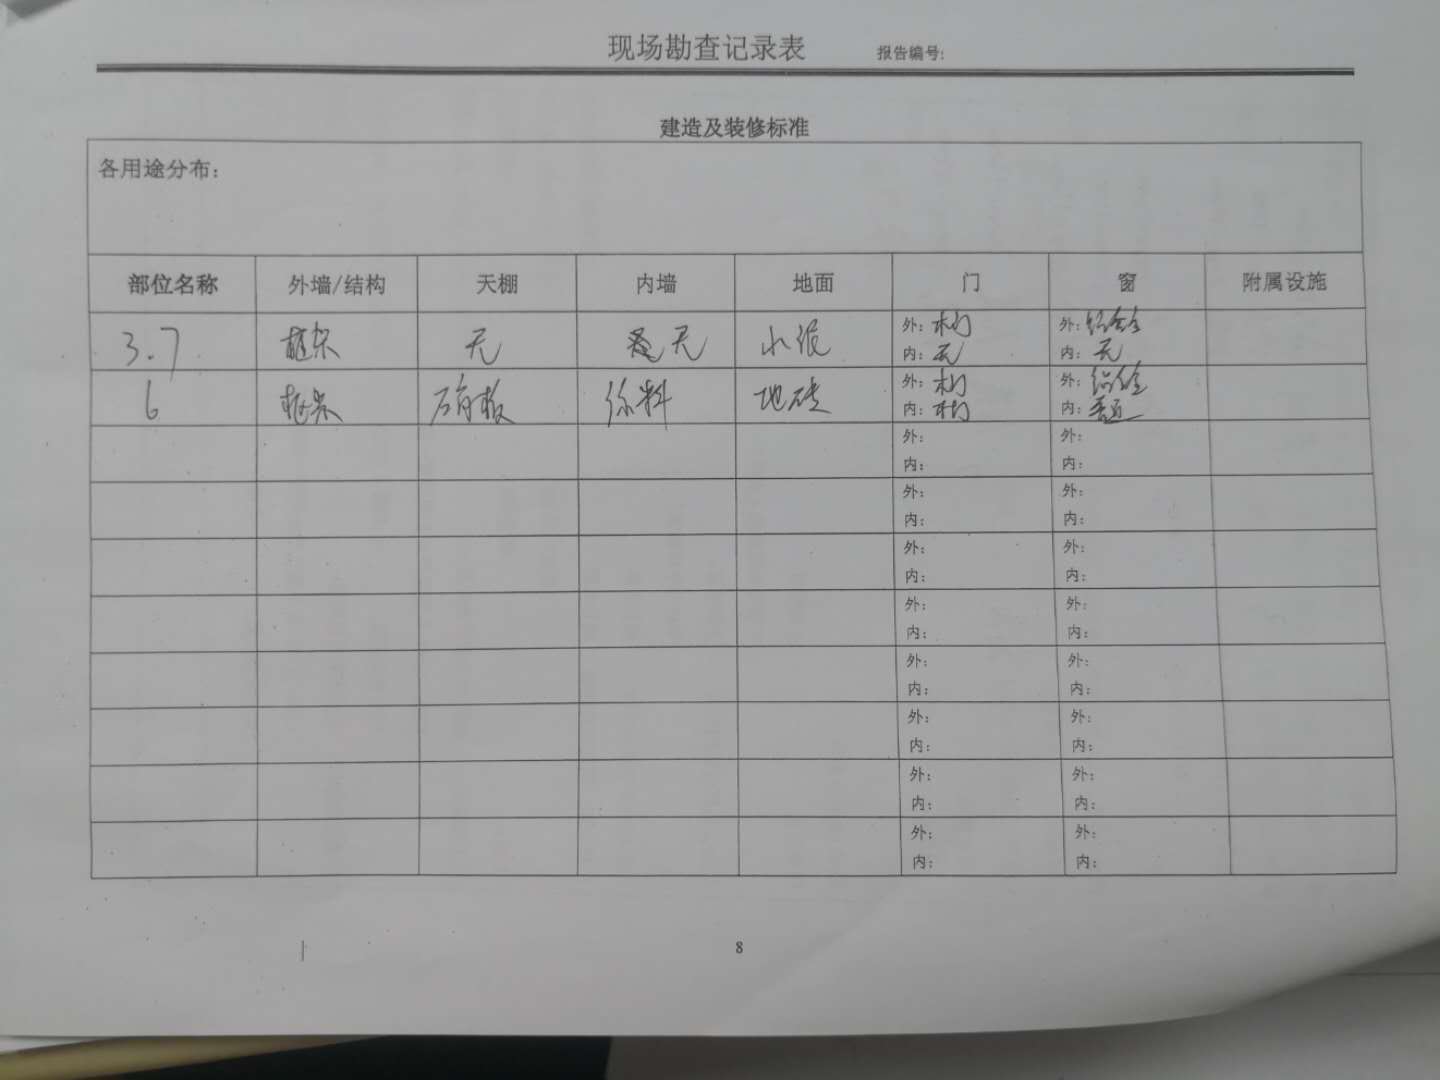 现场勘查记录表 报告编号:
建造及装修标准
各用途分布:
部位名称 外墙/结构 天棚 内墙 地面 门 窗 附属设施
3.7 框架 无 无 水泥 外: 木门 外: 铝合金
内: 无 内: 无
6 框架 石膏板 涂料 地砖 外: 木门 外: 铝合金
内: 木门 内:
外: 外:
内: 内:
外: 外:
内: 内:
外: 外:
内: 内:
外: 外:
内: 内:
外: 外:
内: 内:
外: 外:
内: 内:
外: 外:
内: 内:
外: 外:
内: 内:
8